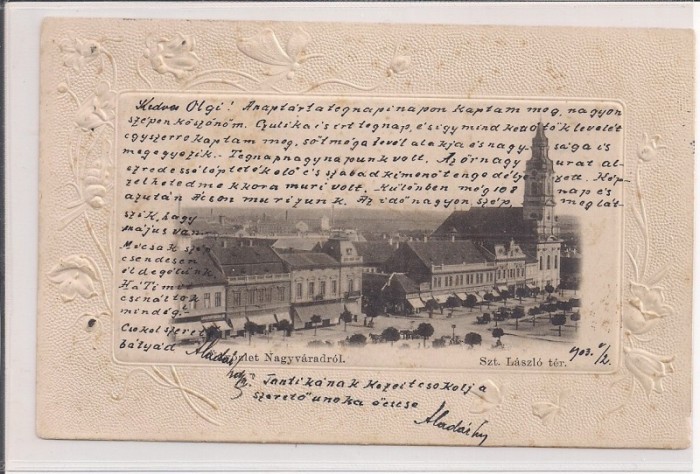 Kedves Olgi! A naptárt a tegnapi napon kaptam meg, nagyon
szépen köszönöm. Czulika is irt tegnap, és igy mind kettőtök levelét
egyszerre kaptam meg, sőt még a levél alakja és nagysága is
megegyezik. - Tegnap nagy napunk volt. Az őrnagy urat al-
ezredessé léptették elő és szabad kimenőt engedélyezett. Kép-
zelheted mekkora muri volt, különben még 108 nap és
azután itthon murizunk. Az idő nagyon szép, meg lát-
szik, hogy
május van.
Mi csak szép
csendesen
éldegélünk.
Hát Ti mit
csináltok
mindég?
Csókol szerető
bátyád Aladár
Üdvözlet Nagyváradról.
Szt. László tér.
903. V/2.
Tantikának kezeit csókolja
szerető unoka öccse
Aladárky